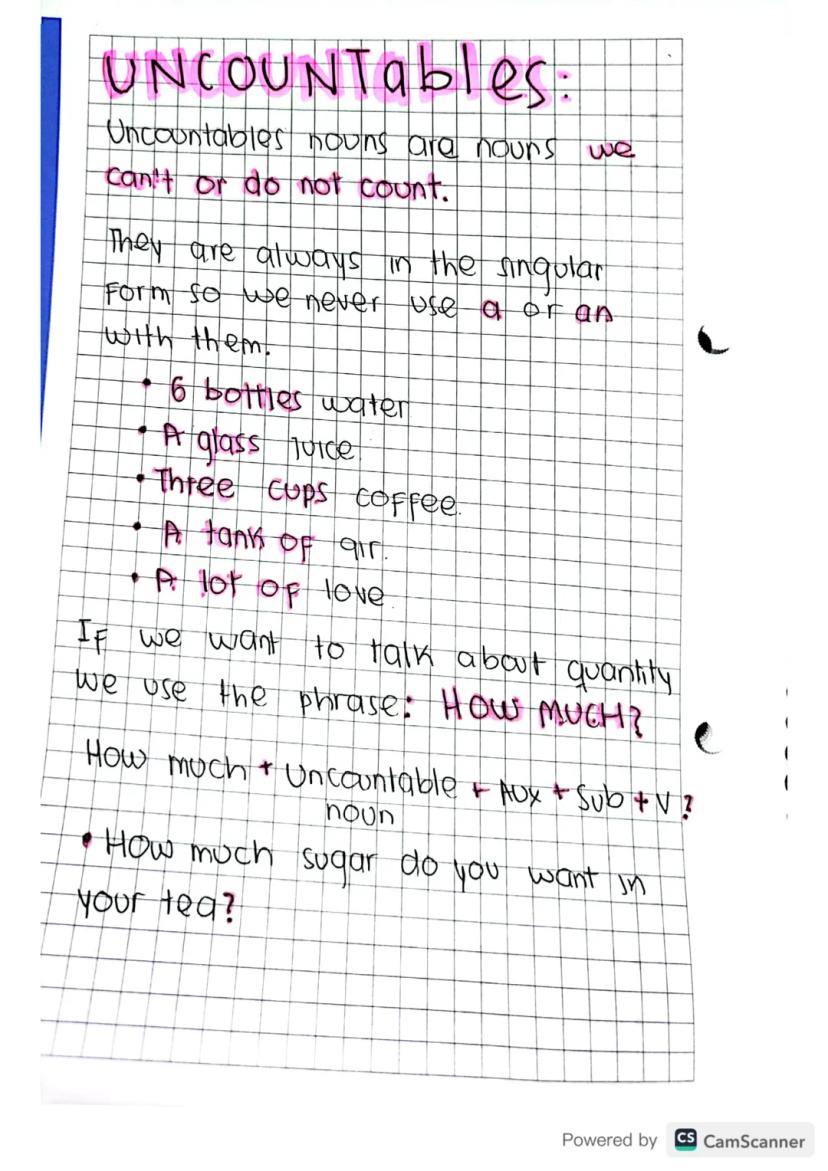 UNCOUNTables:
Uncountables nouns are nouns we
can't or do not count.
They are always in the singular
form so we never use a or an
with them.
• 6 bottles water
• A glass juice
• Three cups coffee.
• A tank of air.
• A lot of love
If we want to talk about quantity
we use the phrase: HOW MUCH?
How much + Uncountable + Aux + Sub + V?
noun
• How much sugar do you want in
your tea?
Powered by CS CamScanner